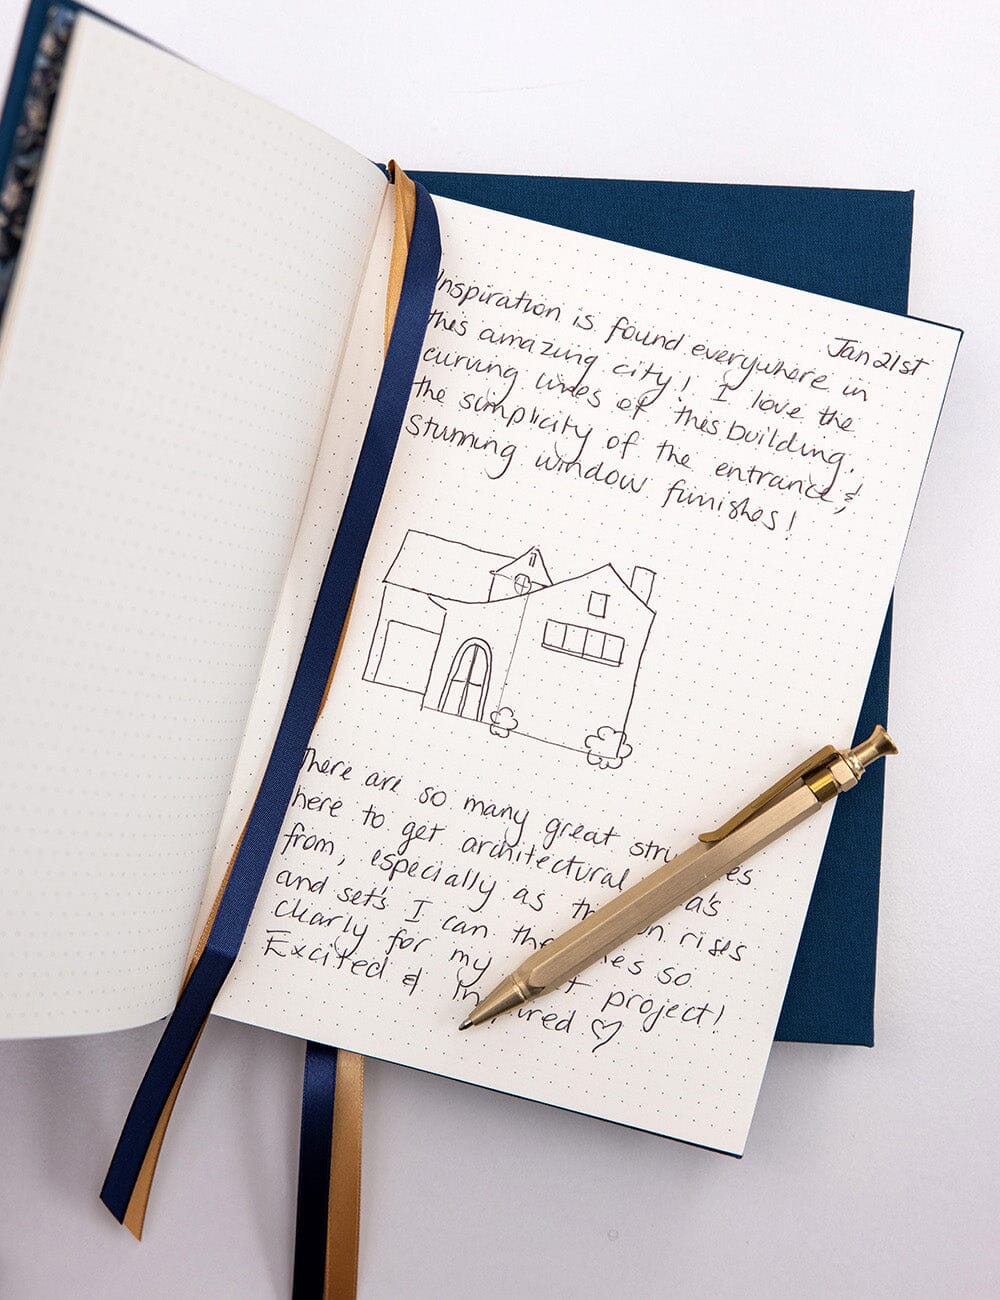 Jan 21st
Inspiration is found everywhere in
this amazing city! I love the
curving lines of this building.
the simplicity of the entrance, &
stunning window finishes!
There are so many great
here to get architectural
from, especially as rises
and sets I can so
clearly for my project!
Excited &